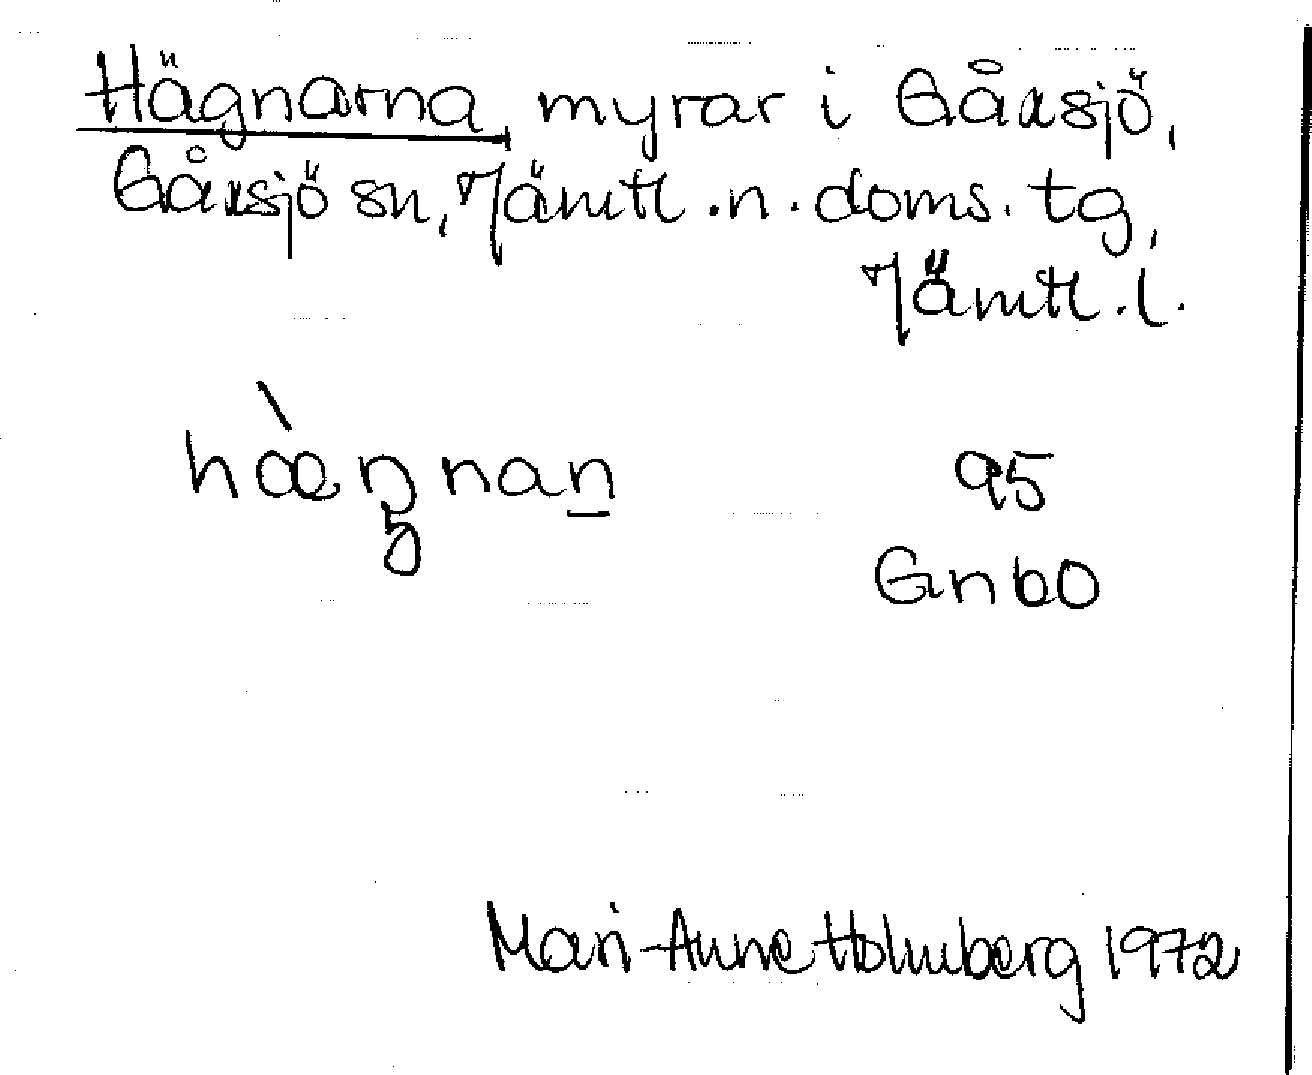 Hägnarna, myrar i Gåxsjö,
Gåxsjö sn, Jämtl.n.doms.tg,
Jämtl.l.
hæ̀ŋnan 95
Gnbo
Mari-Anne Holmberg 1972